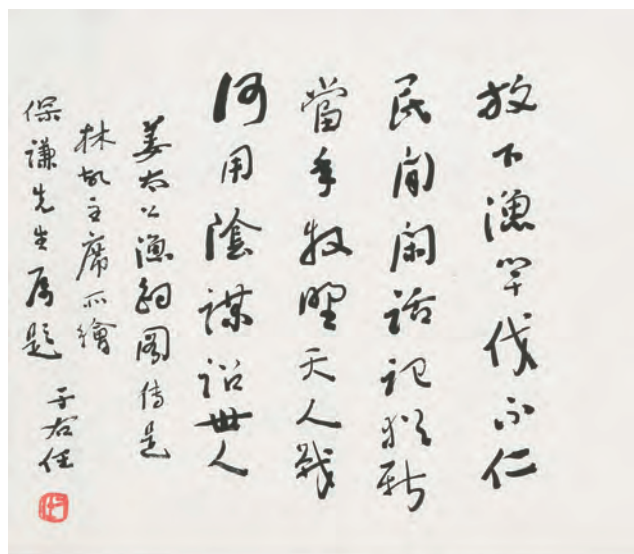 放下漁竿伐不仁
民間閑話記猶新
當年牧野天人戰
何用陰謀詔世人
姜太公漁釣圖傳是
林故主席所繪
保謙先生屬題
于右任